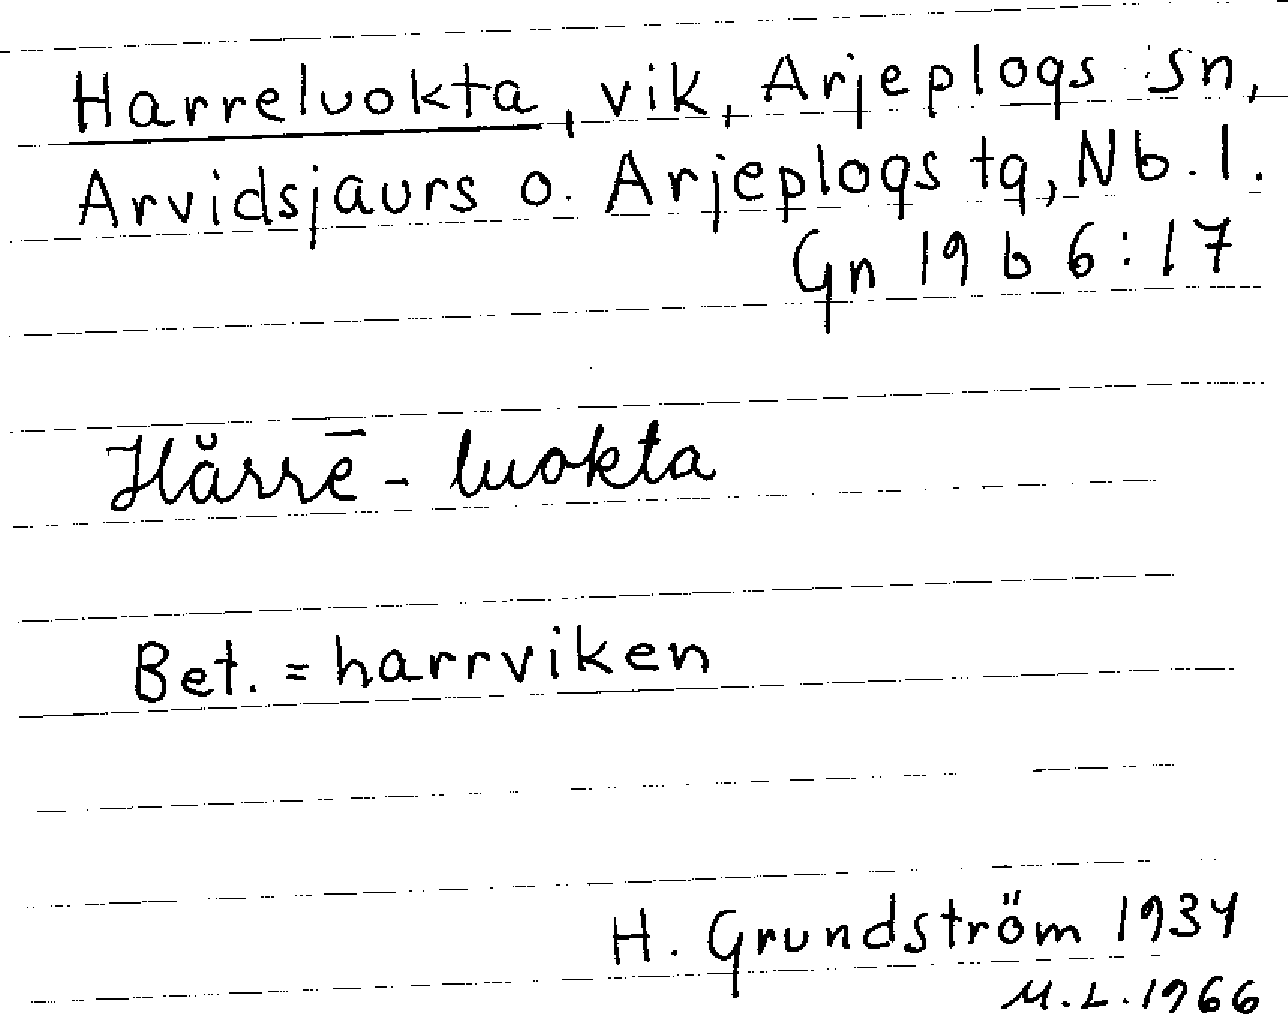 Harreluokta, vik, Arjeplogs sn,
Arvidsjaurs o. Arjeplogs tg, Nb. l.
Gn 19 b 6:17
Hårrē - luokta
Bet. = harrviken
H. Grundström 1934
M.L. 1966